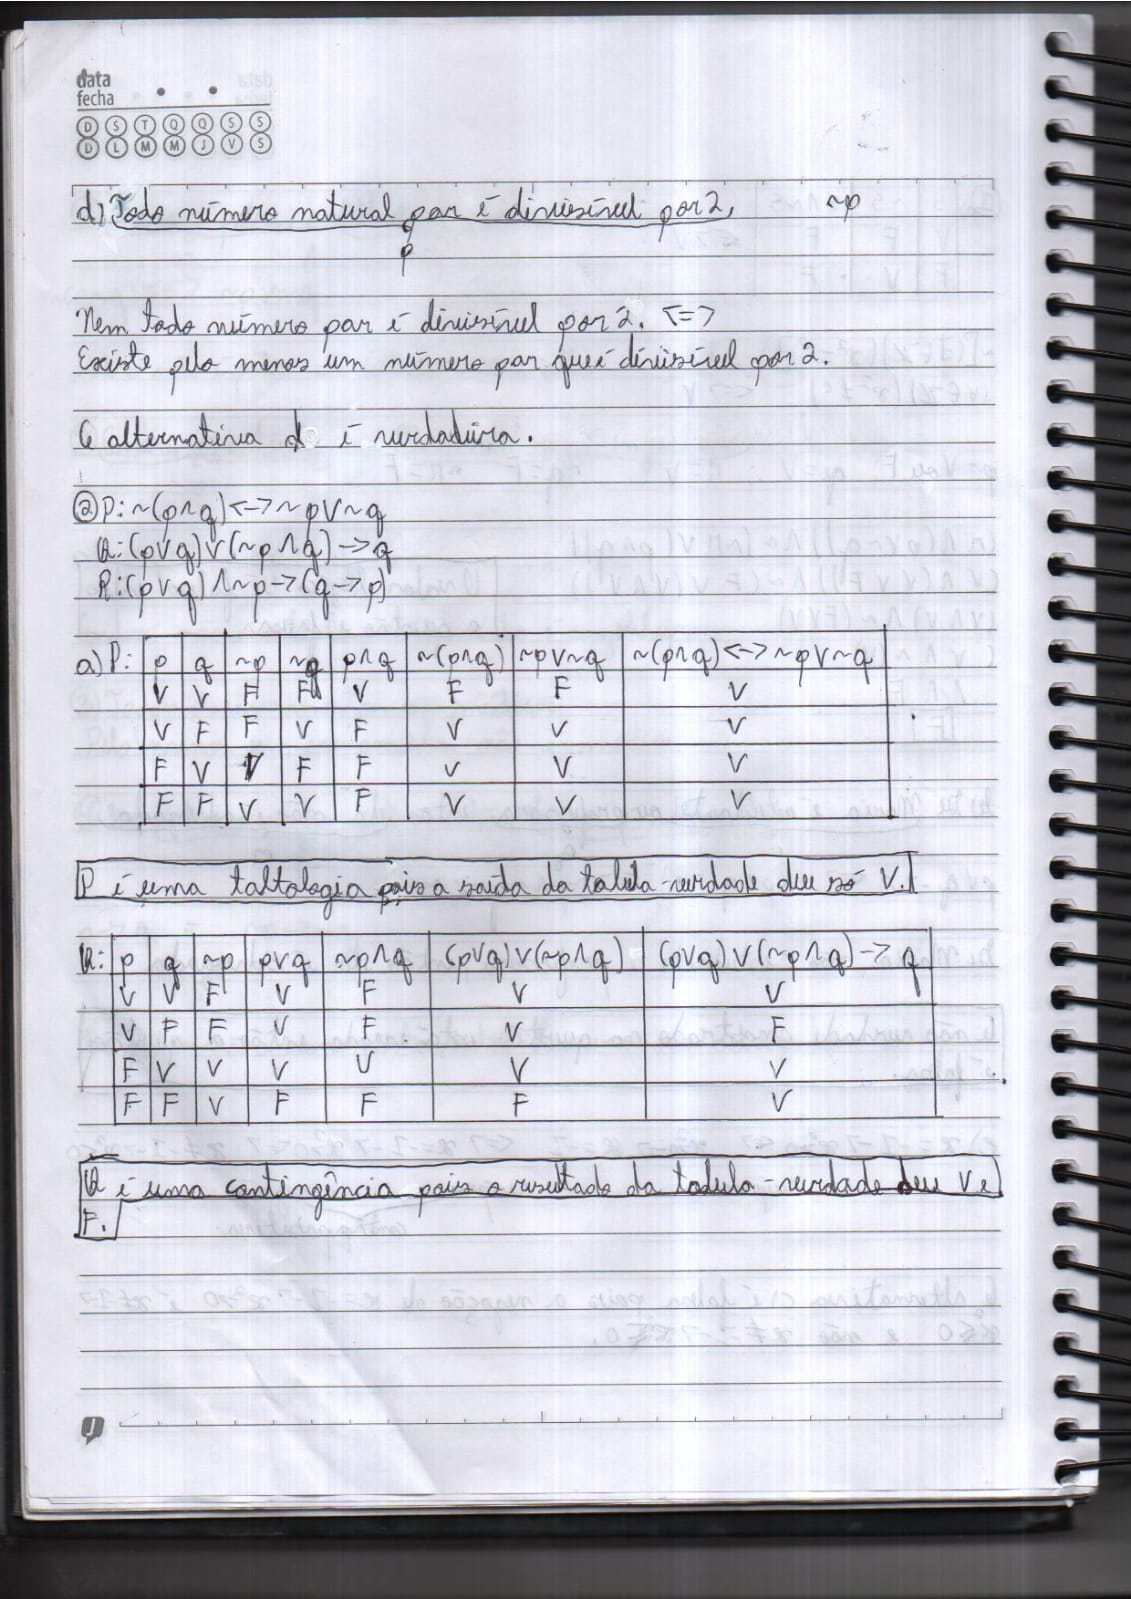 data
fecha
D S T Q Q S S
D L M M J V S
d) Todo número natural par é divisível por 2, ~p
p
Nem todo número par é divisível por 2. <=>
Existe pelo menos um número par que é divisível por 2.
A alternativa d é verdadeira.
② P: ~(p∧q) <-> ~p∨~q
Q: (p∨q)∨(~p∧q) -> q
R: (p∨q)∧~p -> (q -> p)
a) P: p q ~p ~q p∧q ~(p∧q) ~p∨~q ~(p∧q) <-> ~p∨~q
V V F F V F F V
V F F V F V V V
F V V F F V V V
F F V V F V V V
P é uma taltologia pois a saída da tabela-verdade deu só V.
Q: p q ~p p∨q ~p∧q (p∨q)∨(~p∧q) (p∨q)∨(~p∧q) -> q
V V F V F V V
V F F V F V F
F V V V V V V
F F V F F F V
Q é uma contingência pois o resultado da tabela-verdade deu V e
F.